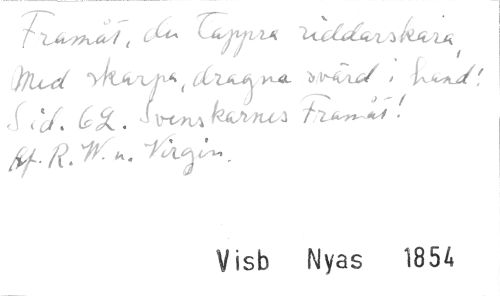 Framåt, du tappra riddarskara,
med skarpa, dragna svärd i hand!
Sid. 62. Svenskarnes Framåt!
Af. R. W. n. Virgin.
Visb Nyas 1854